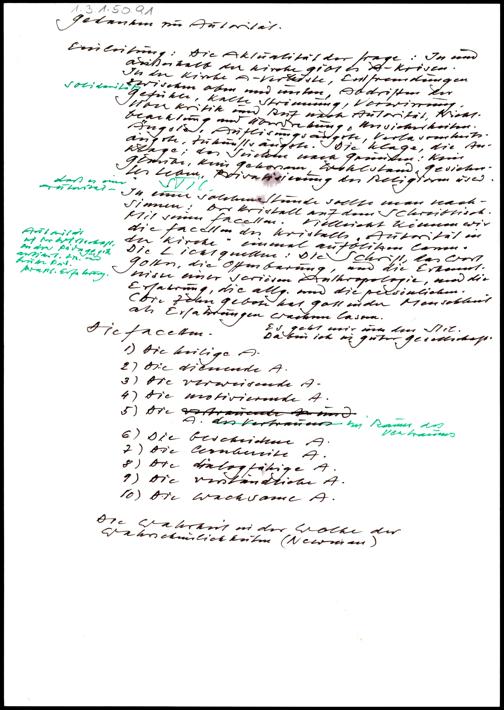 1.3.1.5091
Gedanken zur Autorität.
Einleitung: Die Aktualität der Frage: In und
außerhalb der Kirche gibt es A-Krisen.
In der Kirche A-Verluste, Entfremdungen
Solidarität
zwischen oben und unten, Abdriften der
Gefühle, kalte Strömung, Verwirrung.
Kritik und Ruf nach Autorität, Nicht-
beachtung und
Ängste, Auflösungsängste, Verlassenheits-
ängste, Zukunftsängste. Die Klage, die An-
klage, das Suchen nach Gründen: Kein
Glaube, kein Gehorsam, Wohlstand,
Leben, Privatisierung des Religiösen usw.
STIL
In einer solchen Stunde sollte man nach-
sinnen: Der Kristall auf dem Schreibtisch.
Mit seinen Facetten. Vielleicht können wir
die Facetten des Kristalls "Autorität in
der Kirche" einmal aufblitzen lassen.
Autorität
Die Lichtquellen: Die Schrift, das Wort
Gottes, die Offenbarung, und die Erkennt-
nisse einer seriösen Anthropologie, und die
Erfahrung, die allg. und die persönlichen
(Die Zehn Gebote hat Gott in der Menschheit
als Erfahrungen wachsen lassen.
Es geht mir um den Stil.
Da bin ich in guter Gesellschaft.
Die Facetten.
1) Die heilige A.
2) Die dienende A.
3) Die verweisende A.
4) Die motivierende A.
5) Die vertrauende A. und
A. des Vertrauens im Raume des
Vertrauens
6) Die bescheidene A.
7) Die lernbereite A.
8) Die dialogfähige A.
9) Die verständliche A.
10) Die wachsame A.
Die Wahrheit in der Wolke der
Wahrscheinlichkeiten (Newman)